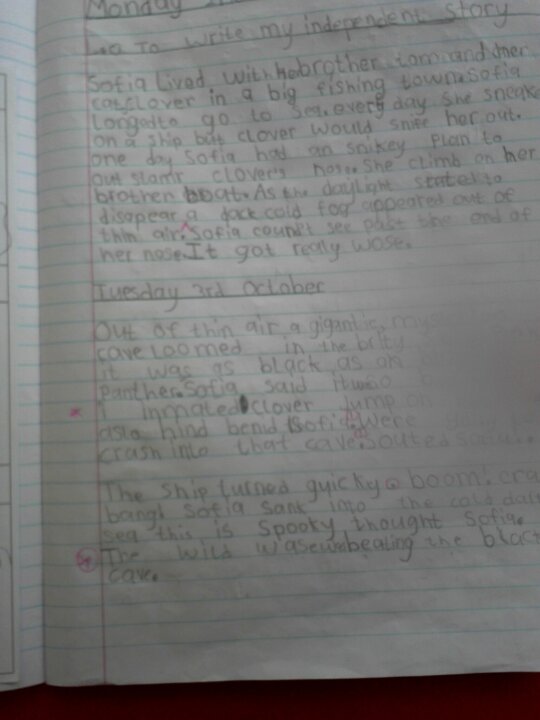 Monday
L.O To write my independent story
Sofia lived with he brother tom and her
cat clover in a big fishing town. Sofia
longed to go to sea. every day she sneake
on a ship but clover would sniff her out.
one day Sofia had an snikey plan to
out clover's nose. She climb on her
brother boat. As the daylight stated to
disapear a dark cold fog appeared out of
thin air. Sofia coundt see past the end of
her nose. It got realy wose.
Tuesday 3rd October
Out of thin air a gigantic
cave loomed in the
it was as black as
Panther. Sofia said
clover Jump on
hind bend Sofia. Were
crash into that cave. Souted
The ship turned quicky boom! cra
bang! Sofia sank into the cold
sea this is spooky thought Sofia.
The wild beating the black
cave.